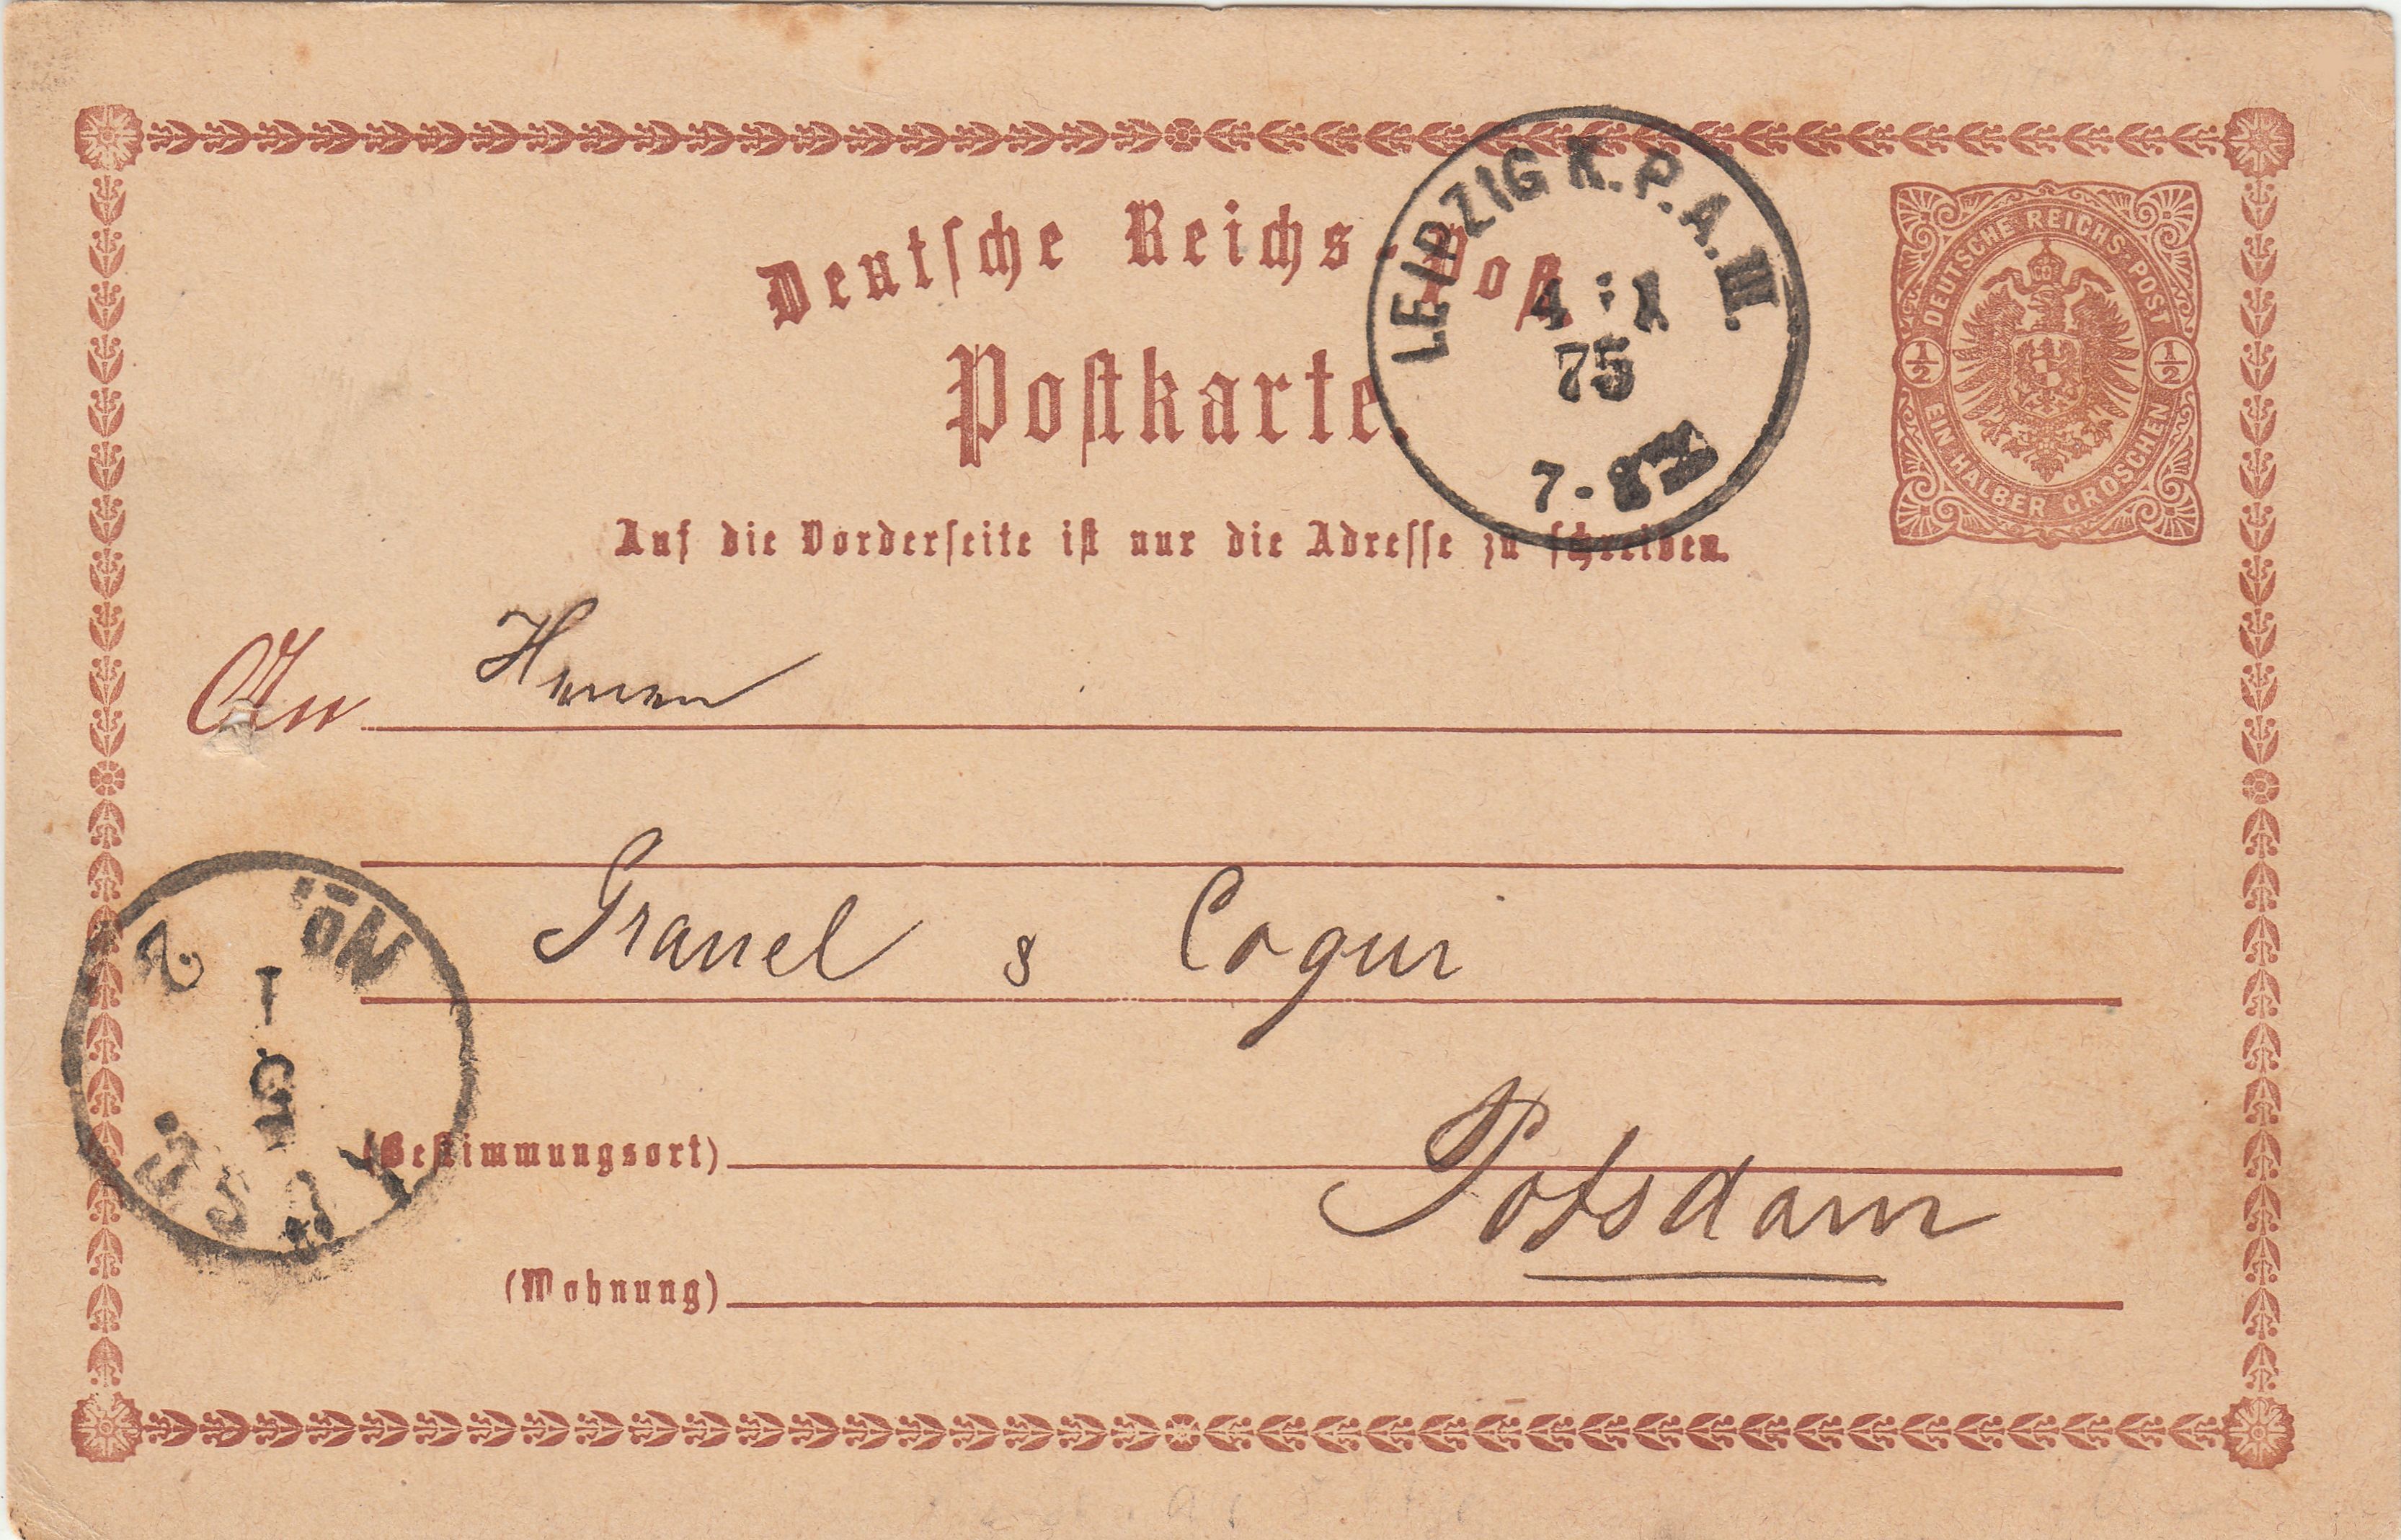 Deutsche Reichs-Post
Postkarte.
LEIPZIG K.P.A. III.
75
7-8 N
DEUTSCHE REICHS-POST
1/2 1/2
EIN HALBER GROSCHEN
Auf die Vorderseite ist nur die Adresse zu schreiben.
An Herren
Coqui
(Bestimmungsort) Potsdam
(Wohnung)